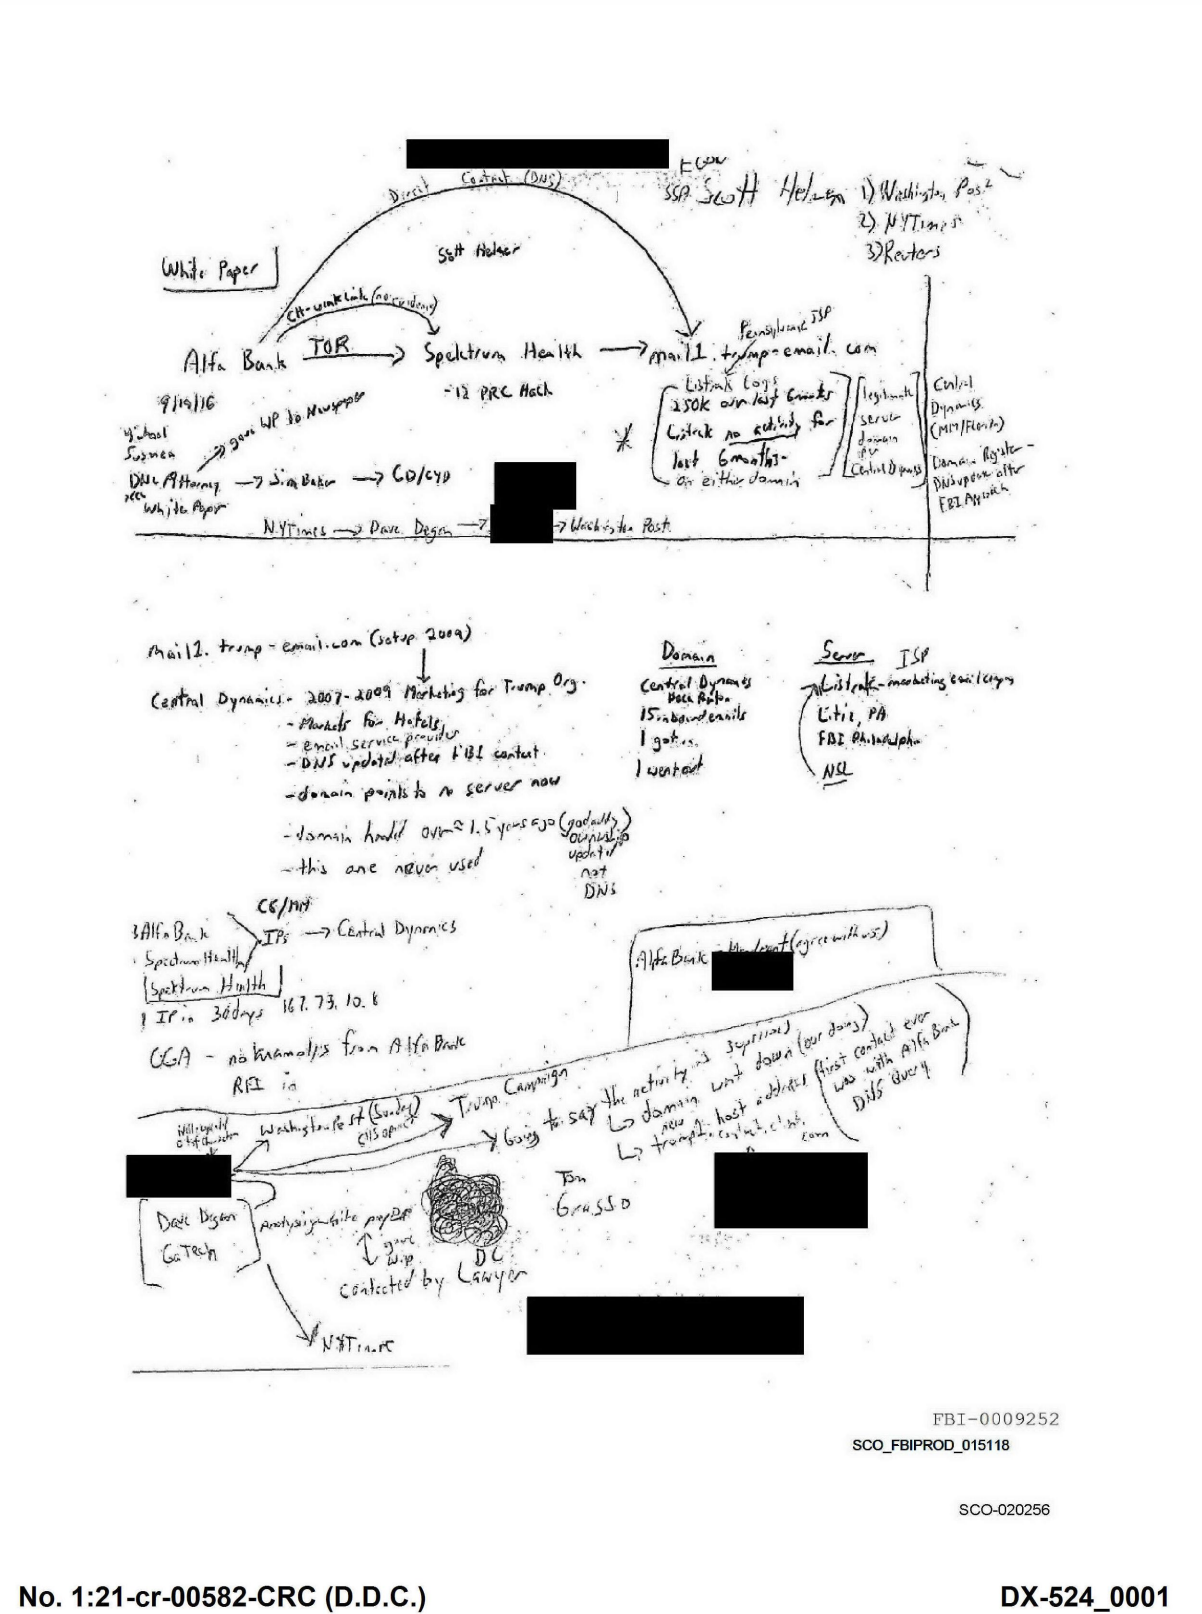 Direct Contact (DNS)
SSA Scott Hel
1) Washington Post
2) NYTimes
3) Reuters
White Paper
Scott
(no evidence)
Pennsylvania ISP
Alfa Bank TOR → Spektrum Health → mail1.trump-email.com
- PRC Hack
9/19/16
gave WP to Newspaper
Michael
Sussman
DNC Attorney → Jim Baker → CD/CYD
White Paper
Listrak Logs
250K over last 6 months
Listrak no activity for
last 6 months-
on either domain
legitimate
server
domain
Central Dynamics
Central
Dynamics
(MM/Florida)
Domain Register -
DNS update after
FBI Approach
NYTimes → Dave Degon → → Washington Post
mail1.trump-email.com (setup 2009)
Central Dynamics - 2007-2009 Marketing for Trump Org.
- Markets for Hotels
- email service provider
- DNS updated after FBI contact
- domain points to no server now
- domain handed over ≈ 1.5 years ago (godaddy)
ownership
updated
not
DNS
- this one never used
Domain
Central Dynamics
Boca Raton
15 inbound emails
1 got in
1 went out
Server ISP
Listrak - marketing email
Litiz, PA
FBI Philadelphia
NSL
CG/MM
Alfa Bank
Spectrum Health
Spektrum Health
IPs → Central Dynamics
1 IP in 30days 167.73.10.8
OGA - no from Alfa Bank
RFI in
Alfa Bank - Mandiant (agree with us)
Washington Post (Sunday)
Trump Campaign
Going to say the activity is suprised
↳ domain went down (our doing)
↳ new host address (first contact ever
was with Alfa Bank
DNS Query
trump1.contact.client.com
Dave Degon
GaTech
Analysis white paper
gave
WP
contacted by DC Lawyer
Tom
Grasso
NYTimes
FBI-0009252
SCO_FBIPROD_015118
SCO-020256
No. 1:21-cr-00582-CRC (D.D.C.)
DX-524_0001